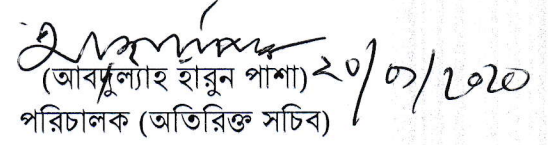 (আবদুল্যাহ হারুন পাশা) ২০/০১/২০২০
পরিচালক (অতিরিক্ত সচিব)